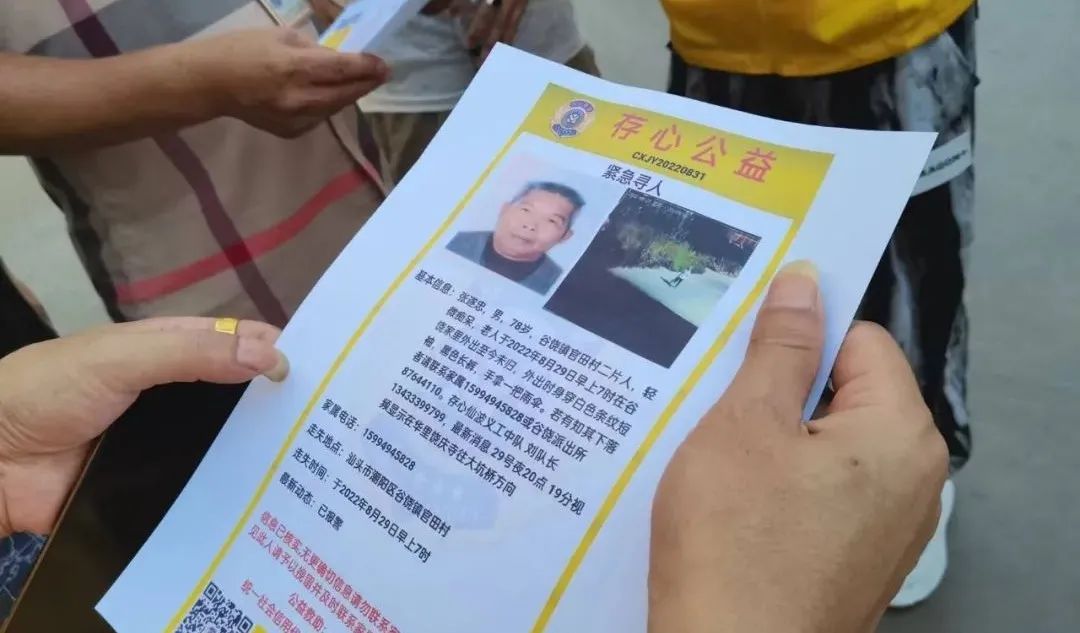 存心公益
CXJY20220831
紧急寻人
基本信息：张遂忠，男，78岁，谷饶镇官田村二片人，轻
微痴呆，老人于2022年8月29日早上7时在谷
饶家里外出至今未归，外出时身穿白色条纹短
袖，黑色长裤，手拿一把雨伞。若有知其下落
者请联系家属15994945828或谷饶派出所
87644110。存心仙波义工中队 刘队长
13433399799，最新消息 29号夜20点 19分视
频显示在华里饶庆寺往大坑桥方向
家属电话：15994945828
走失地点：汕头市潮阳区谷饶镇官田村
走失时间：于2022年8月29日早上7时
最新动态：已报警
信息已核实，无更确切信息请勿联系
见此人请予以挽留并及时联系家
公益救助：
统一社会信用